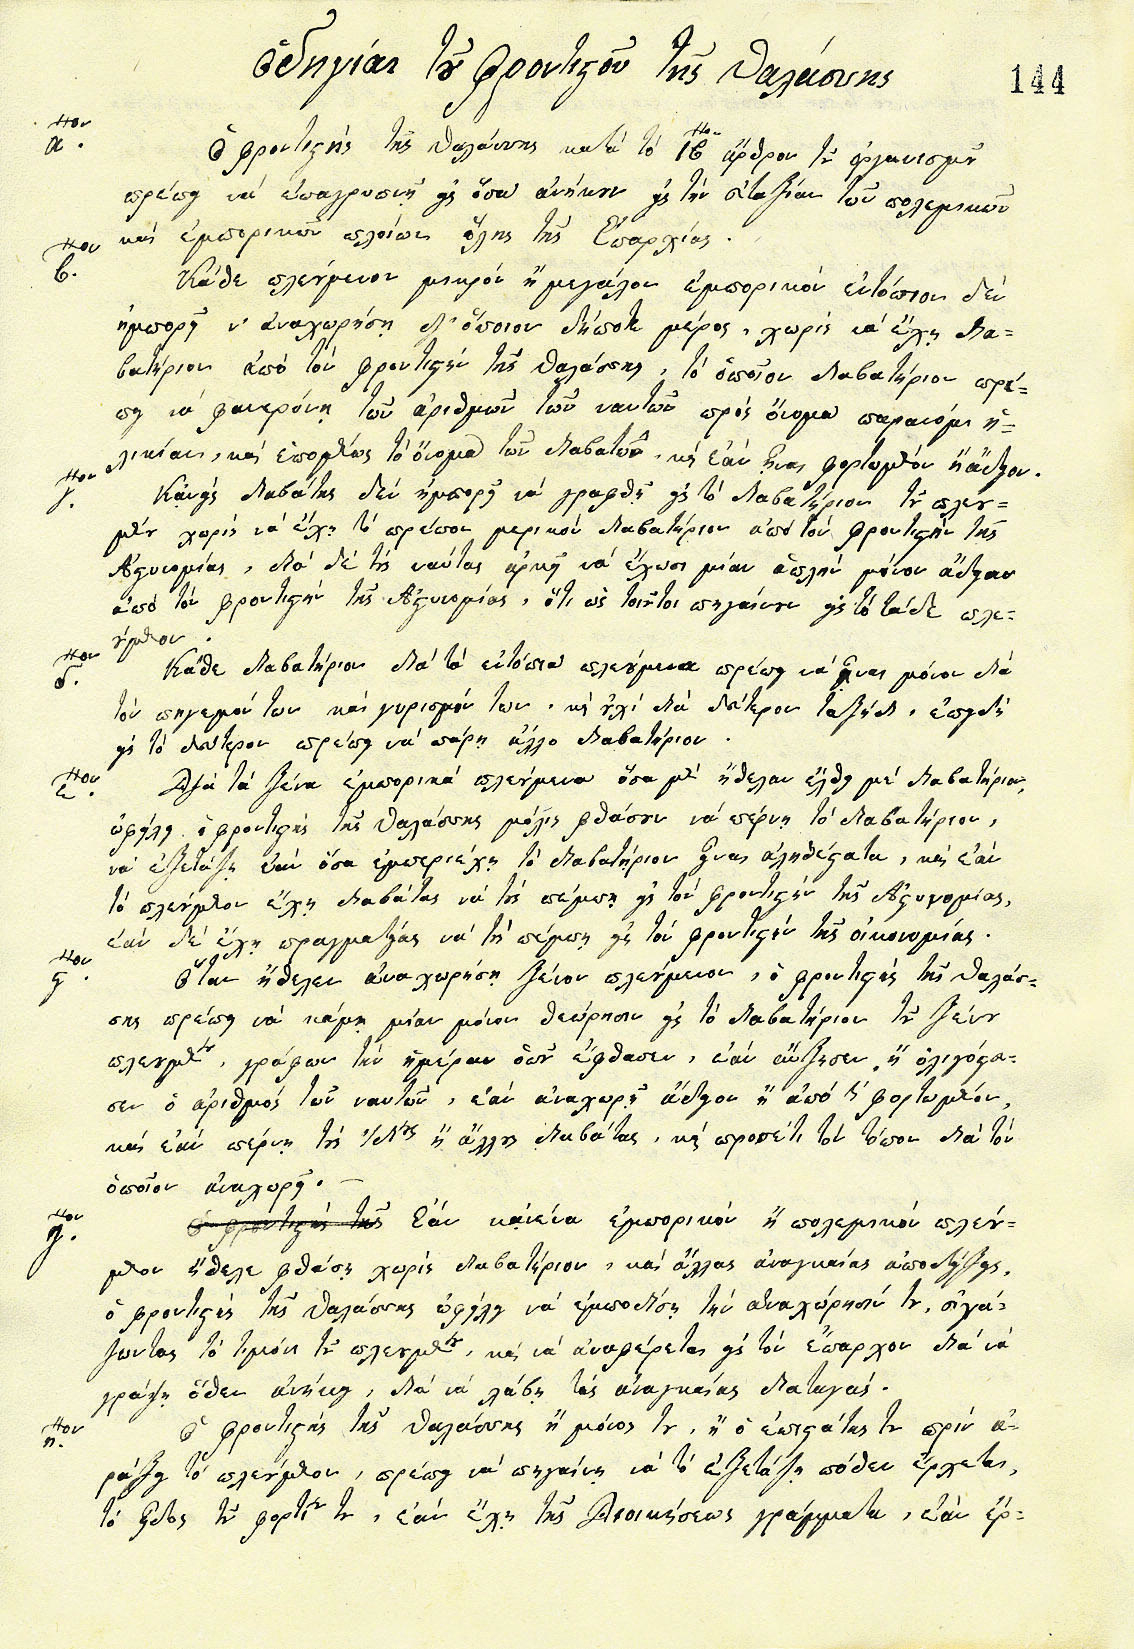 Ὁδηγίαι τοῦ φροντιστοῦ τῆς θαλάσσης
144
α.ον Ὁ φροντιστής τῆς θαλάσσης κατά τό ιβ ον ἄρθρον τοῦ ὀργανισμοῦ
πρέπει νά ἐπαγρυπνῇ εἰς ὅσα ἀνήκουν εἰς τήν εὐταξίαν τῶν πολεμικῶν
καί ἐμπορικῶν πλοίων ὅλης τῆς Ἐπαρχίας.
β.ον Κάθε πλεούμενον μικρόν ἤ μεγάλον ἐμπορικόν ἐντόπιον δέν
ἠμπορεῖ ν' ἀναχωρήσῃ δι' ὅποιον δήποτε μέρος, χωρίς νά ἔχῃ δια-
βατήριον ἀπό τόν φροντιστήν τῆς θαλάσσης, τό ὁποῖον διαβατήριον πρέ-
πει νά φανερόνῃ τῶν ἀριθμῶν τῶν ναυτῶν πρός ὄνομα παρανόμι ἡ-
λικίαν, καί ἑπομένως τό ὄνομα τῶν διαβατῶν, καί ἐάν ἦναι φορτωμένον ἤ ἄδειον.
γ.ον Κανείς διαβάτης δέν ἠμπορεῖ νά γραφθῇ εἰς τό διαβατήριον τοῦ πλεου-
μένου χωρίς νά ἔχῃ τό πρέπον μερικόν διαβατήριον ἀπό τόν φροντιστήν τῆς
Ἀστυνομίας, διά δέ τούς ναύτας ἀρκεῖ νά ἔχωσι μίαν ἁπλήν μόνον ἄδειαν
ἀπό τόν φροντιστήν τῆς Ἀστυνομίας, ὅτι ὡς τοιοῦτοι πηγαίνουν εἰς τό τάδε πλε-
ούμενον.
δ.ον Κάθε διαβατήριον διά τά ἐντόπια πλεούμενα πρέπει νά ἦναι μόνον διά
τόν πηγεμόν των καί γυρισμόν των, καί οὐχί διά δεύτερον ταξείδι, ἐπειδή
εἰς τό δεύτερον πρέπει νά πάρῃ ἄλλο διαβατήριον.
ε.ον Διά τά ξένα ἐμπορικά πλεούμενα ὅσα μέν ἤθελαν ἔλθῃ μέ διαβατήριον,
ὀφείλει ὁ φροντιστής τῆς θαλάσσης μόλις φθάσουν νά πέρνῃ τό διαβατήριον,
νά ἐξετάζῃ ἐάν ὅσα ἐμπεριέχῃ τό διαβατήριον ἦναι ἀληθέστατα, καί ἐάν
τό πλεούμενον ἔχῃ διαβάτας νά τούς πέμπῃ εἰς τόν φροντιστήν τῆς Ἀστυνομίας,
ἐάν δέ ἔχῃ πραγματείας νά τάς πέμπῃ εἰς τόν φροντιστήν τῆς οἰκονομίας.
ϛ.ον Ὅταν ἤθελεν ἀναχωρήσῃ ξένον πλεούμενον, ὁ φροντιστής τῆς θαλάσ-
σης πρέπει νά κάμῃ μίαν μόνον θεώρησιν εἰς τό διαβατήριον τοῦ ξένου
πλευμένου, γράφων τήν ἡμέραν ὁποῦ ἔφθασεν, ἐάν αὔξησεν ἤ ὀλιγόστε-
σεν ὁ ἀριθμός τῶν ναυτῶν, ἐάν ἀναχωρῇ ἄδειον ἤ φορτωμένον,
καί ἐάν πέρνῃ τούς ἰδίους ἤ ἄλλους διαβάτας, καί προσέτι τόν τόπον διά τόν
ὁποῖον ἀναχωρεῖ.
ζ.ον Ὁ φροντιστής τῆς Ἐάν κανένα ἐμπορικόν ἤ πολεμικόν πλεού-
μενον ἤθελε φθάσῃ χωρίς διαβατήριον, καί ἄλλας ἀναγκαίας ἀποδείξεις,
ὁ φροντιστής τῆς θαλάσσης ὀφείλει νά ἐμποδίσῃ τήν ἀναχώρησίν του, σιγά-
ζωντας τό τιμόνι τοῦ πλευμένου, καί νά ἀναφέρεται εἰς τόν ἔπαρχον διά νά
γράψῃ ὅθεν ἀνήκει, διά νά λάβῃ τάς ἀναγκαίας διαταγάς.
η.ον Ὁ φροντιστής τῆς θαλάσσης ἤ μόνος του, ἤ ὁ ἐπιστάτης του πρίν ἀ-
ράξῃ τό πλεούμενον, πρέπει νά πηγαίνῃ νά τό ἐξετάζῃ πόθεν ἔρχεται,
τό εἶδος τοῦ φορτίου του, ἐάν ἔχῃ τῆς Διοικήσεως γράμματα, ἐάν ἔρ-